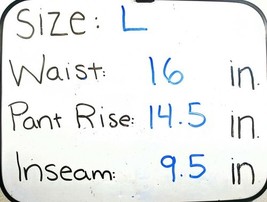 Size: L
Waist: 16 in.
Pant Rise: 14.5 in.
Inseam: 9.5 in